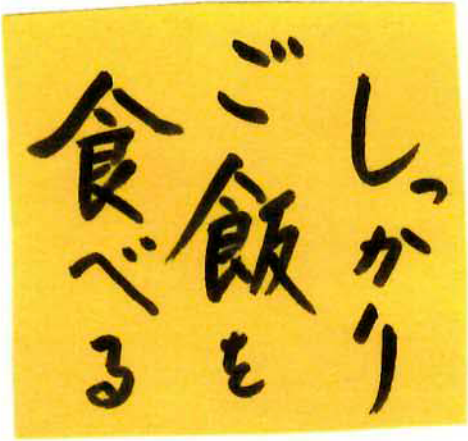 しっかり
ご飯を
食べる